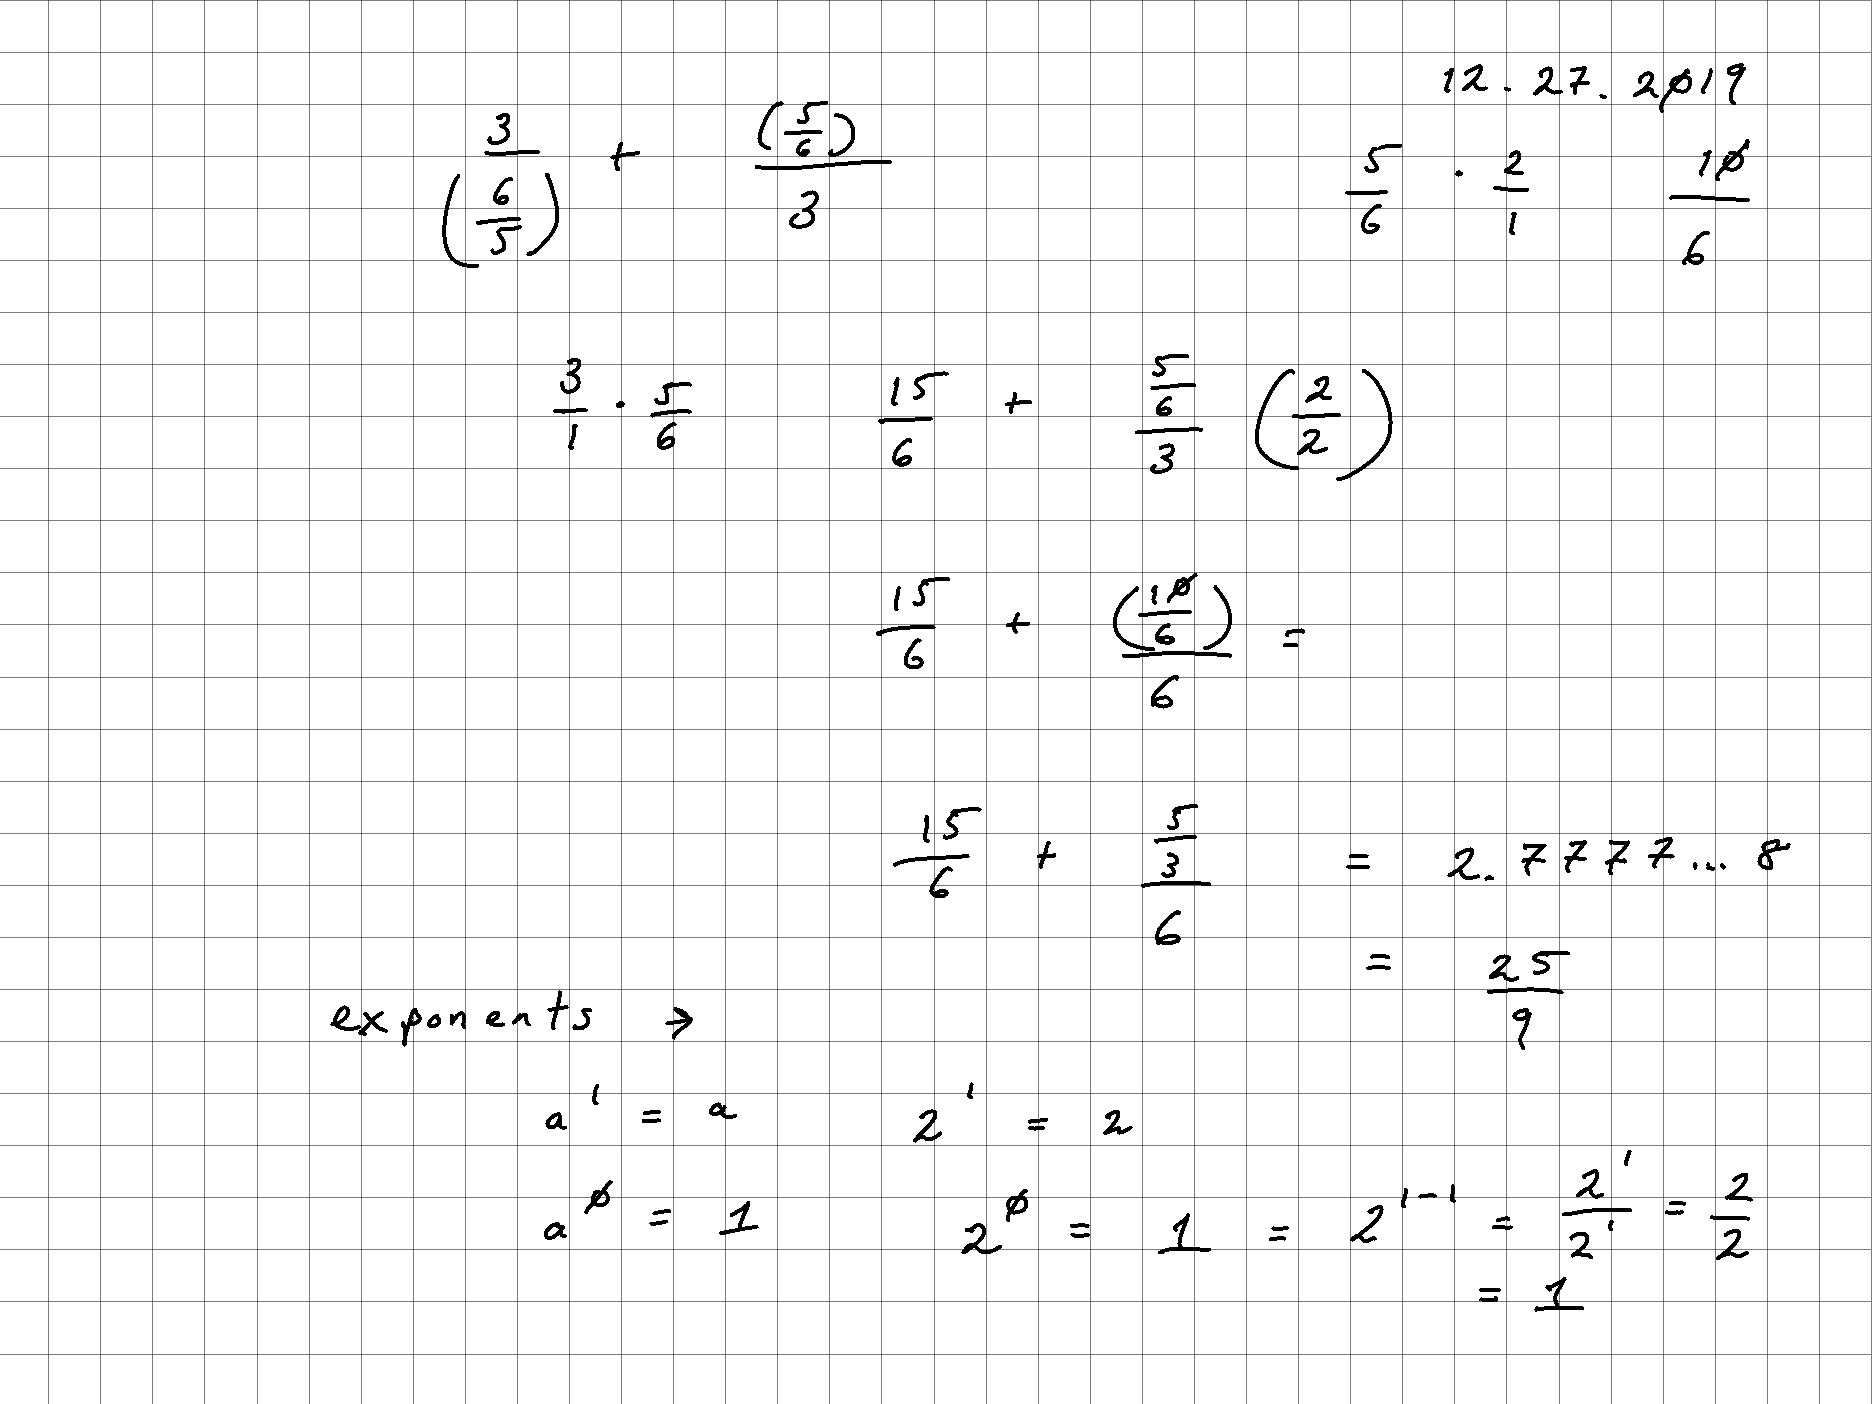 12.27.2019
3/(6/5) + (5/6)/3
5/6 · 2/1 10/6
3/1 · 5/6 15/6 + 5/6/3 (2/2)
15/6 + (10/6)/6 =
15/6 + 5/3/6 = 2.7777...8
= 25/9
exponents →
a^1 = a 2^1 = 2
a^0 = 1 2^0 = 1 = 2^1-1 = 2^1/2^1 = 2/2
= 1